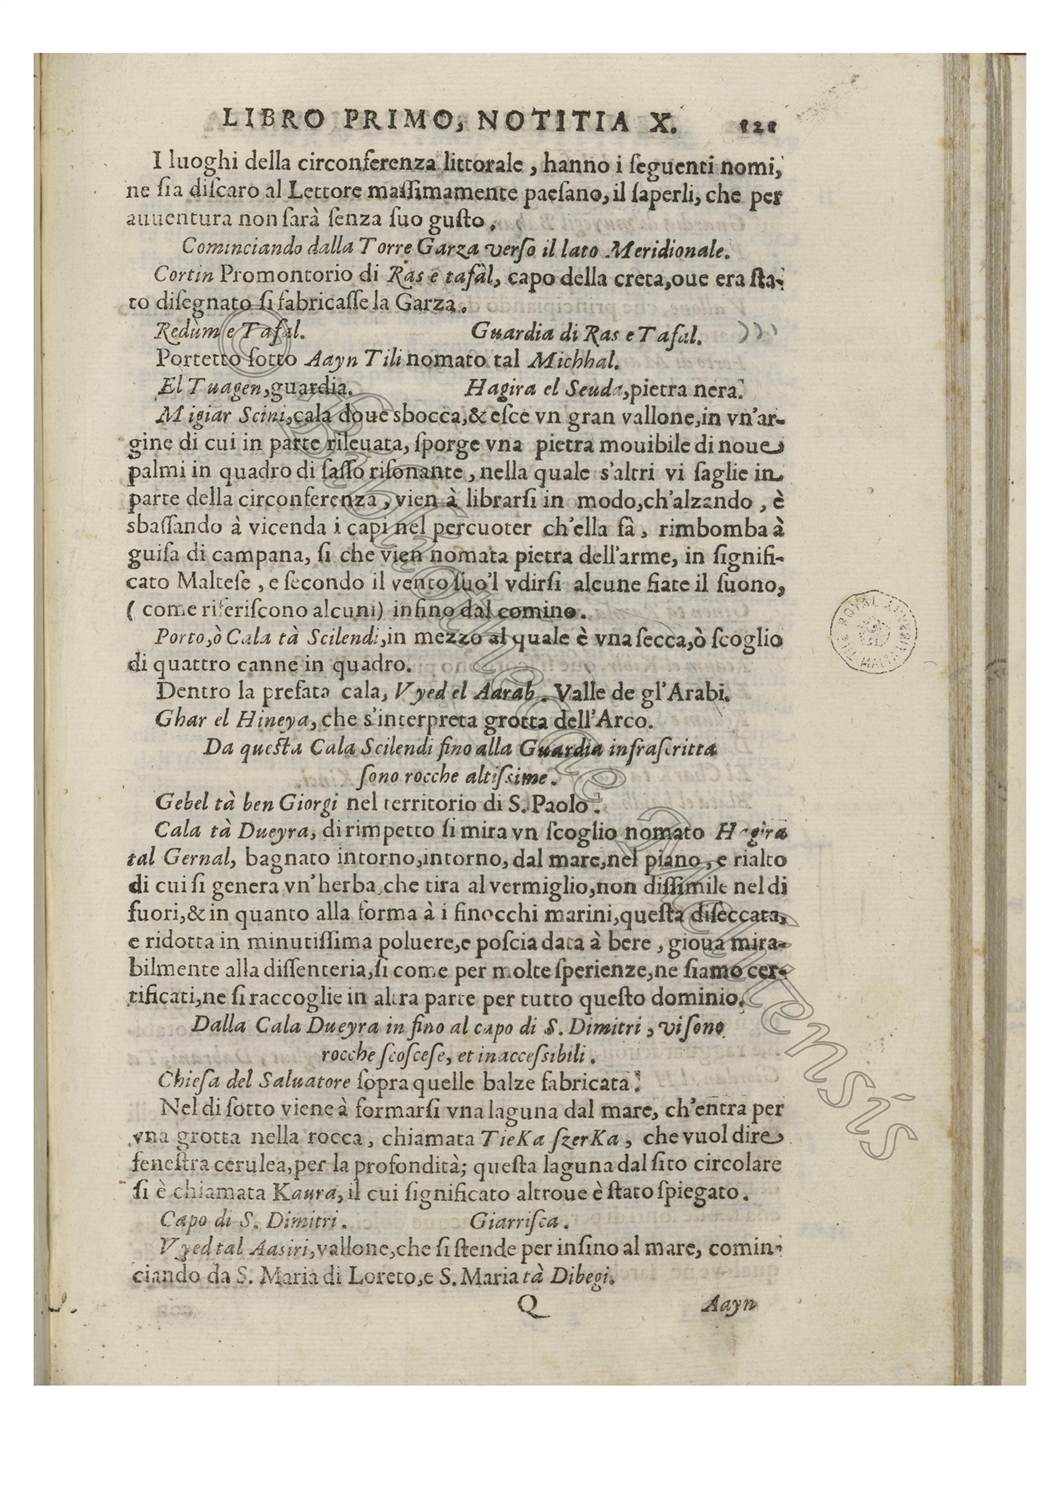 LIBRO PRIMO, NOTITIA X. 121
I luoghi della circonferenza littorale, hanno i ſeguenti nomi,
ne ſia diſcaro al Lettore maſſimamente paeſano, il ſaperli, che per
auuentura non ſarà ſenza ſuo guſto.
Cominciando dalla Torre Garza verſo il lato Meridionale.
Cortin Promontorio di Ras e tafàl, capo della creta, oue era ſta-
to diſegnato ſi fabricaſſe la Garza.
Redùm e Tafal. Guardia di Ras e Tafal.
Portetto ſotto Aayn Tili nomato tal Michhal.
El Tuagen, guardia. Hagira el Seuda, pietra nera.
Migiar Scini, cala doue sbocca, & eſce vn gran vallone, in vn'ar-
gine di cui in parte rileuata, ſporge vna pietra mouibile di noue
palmi in quadro di ſaſſo riſonante, nella quale s'altri vi ſaglie in
parte della circonferenza, vien à librarſi in modo, ch'alzando, è
sbaſſando à vicenda i capi nel percuoter ch'ella fà, rimbomba à
guiſa di campana, ſi che vien nomata pietra dell'arme, in ſignifi-
cato Malteſe, e ſecondo il vento ſuo'l vdirſi alcune fiate il ſuono,
( come riferiſcono alcuni) infino dal comino.
Porto, ò Cala tà Scilendi, in mezzo al quale è vna ſecca, ò ſcoglio
di quattro canne in quadro.
Dentro la prefata cala, Vyed el Aarab. Valle de gl'Arabi.
Ghar el Hineya, che s'interpreta grotta dell'Arco.
Da queſta Cala Scilendi fino alla Guardia infraſcritta
ſono rocche altiſſime.
Gebel tà ben Giorgi nel territorio di S. Paolo.
Cala tà Dueyra, dirimpetto ſi mira vn ſcoglio nomato Hagira
tal Gernal, bagnato intorno, intorno, dal mare, nel piano, e rialto
di cui ſi genera vn'herba che tira al vermiglio, non diſſimile nel di
fuori, & in quanto alla forma à i finocchi marini, queſta diſeccata,
e ridotta in minutiſſima poluere, e poſcia data à bere, gioua mira-
bilmente alla diſſenteria, ſi come per molte ſperienze, ne ſiamo cer-
tificati, ne ſi raccoglie in altra parte per tutto queſto dominio.
Dalla Cala Dueyra in fino al capo di S. Dimitri, vi ſono
rocche ſcoſceſe, et inacceſſibili.
Chieſa del Saluatore ſopra quelle balze fabricata.
Nel di ſotto viene à formarſi vna laguna dal mare, ch'entra per
vna grotta nella rocca, chiamata TieKa ſzerKa, che vuol dire
feneſtra cerulea, per la profondità; queſta laguna dal ſito circolare
ſi è chiamata Kaura, il cui ſignificato altroue è ſtato ſpiegato.
Capo di S. Dimitri. Giarriſca.
Vyed tal Aasiri, vallone, che ſi ſtende per inſino al mare, comin-
ciando da S. Maria di Loreto, e S. Maria tà Dibegi.
Q Aayn
THE ROYAL MALTA LIBRARY
© Bibliotheca Melitensis